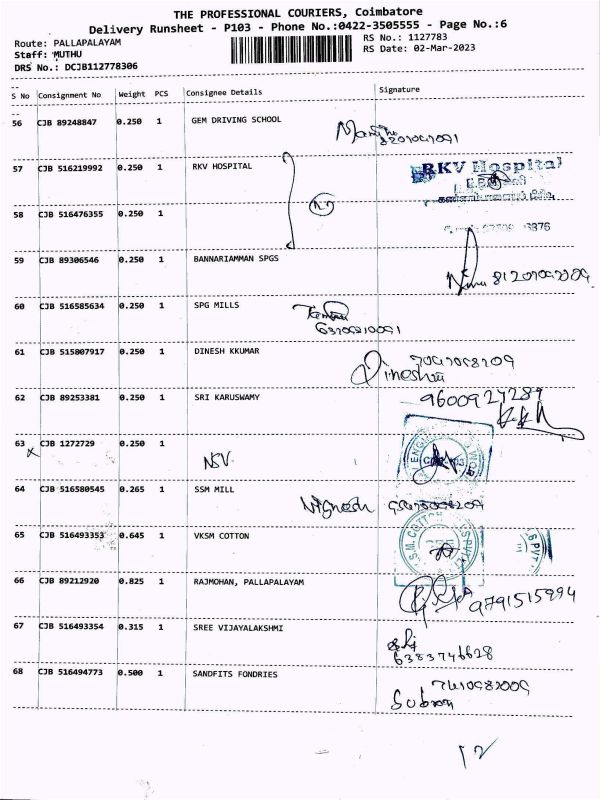 THE PROFESSIONAL COURIERS, Coimbatore
Delivery Runsheet - P103 - Phone No.:0422-3505555 - Page No.:6
Route: PALLAPALAYAM
RS No.: 1127783
Staff: MUTHU
RS Date: 02-Mar-2023
DRS No.: DCJB112778306
S No Consignment No Weight PCS Consignee Details Signature
56 CJB 89248847 0.250 1 GEM DRIVING SCHOOL
57 CJB 516219992 0.250 1 RKV HOSPITAL
RKV Hospital
58 CJB 516476355 0.250 1
59 CJB 89306546 0.250 1 BANNARIAMMAN SPGS
60 CJB 516585634 0.250 1 SPG MILLS
61 CJB 515807917 0.250 1 DINESH KKUMAR
Dinesh
62 CJB 89253381 0.250 1 SRI KARUSWAMY
9600927289
63 CJB 1272729 0.250 1
NSV
64 CJB 516580545 0.265 1 SSM MILL
Vignesh
65 CJB 516493353 0.645 1 VKSM COTTON
66 CJB 89212920 0.825 1 RAJMOHAN, PALLAPALAYAM
9791515994
67 CJB 516493354 0.315 1 SREE VIJAYALAKSHMI
6383746628
68 CJB 516494773 0.500 1 SANDFITS FONDRIES
12